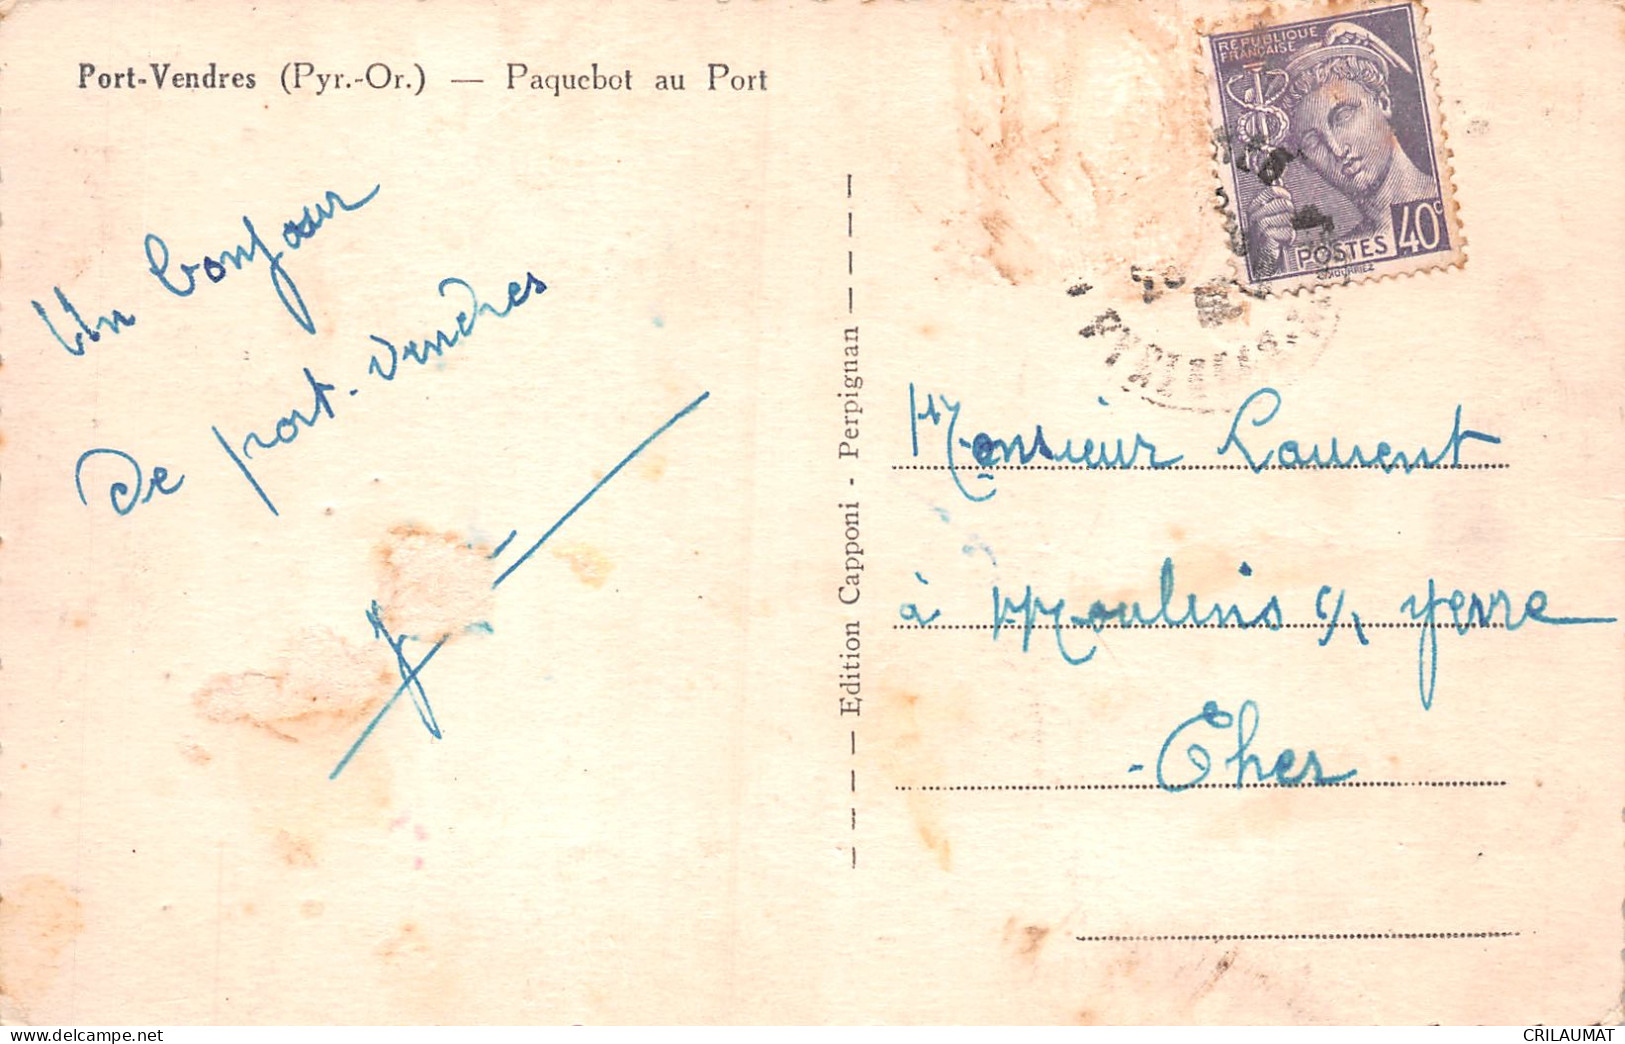 Port-Vendres (Pyr.-Or.) — Paquebot au Port
Un bonjour
De port-vendres
Edition Capponi - Perpignan
REPUBLIQUE
FRANÇAISE
40c
POSTES
Monsieur Laurent
à Moulins s/ yerre
-Cher
delcampe.net
CRILAUMAT